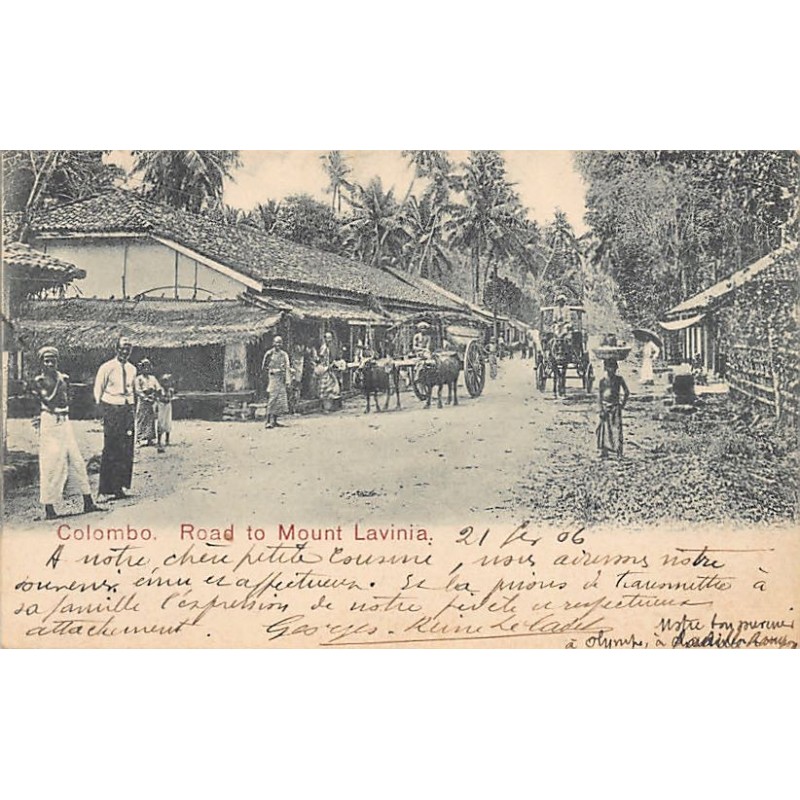 Colombo. Road to Mount Lavinia. 21 fev 06
A notre chère petite Cousine, nous adressons notre
souvenir ému et affectueux. Et la prions de transmettre à
sa famille l'expression de notre fidèle et respectueux
attachement. Georges - Reine Le
Notre bon souvenir
à Olympe, à